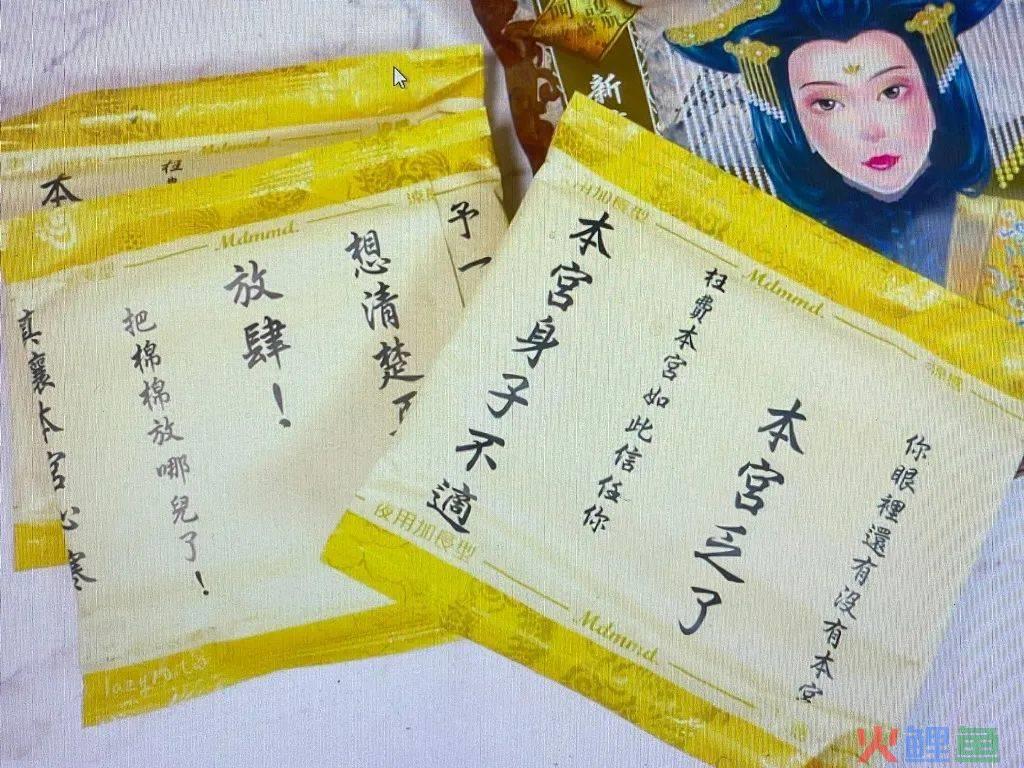 新
本
枉
Mdmmd.
予一
想清楚
放肆！
把棉棉放哪兒了！
真襄本宮心寒
Mdmmd.
你眼裡還有沒有本宮
本宮乏了
枉費本宮如此信任你
本宮身子不適
夜用加長型
夜用加長型
Mdmmd.
火鲤鱼